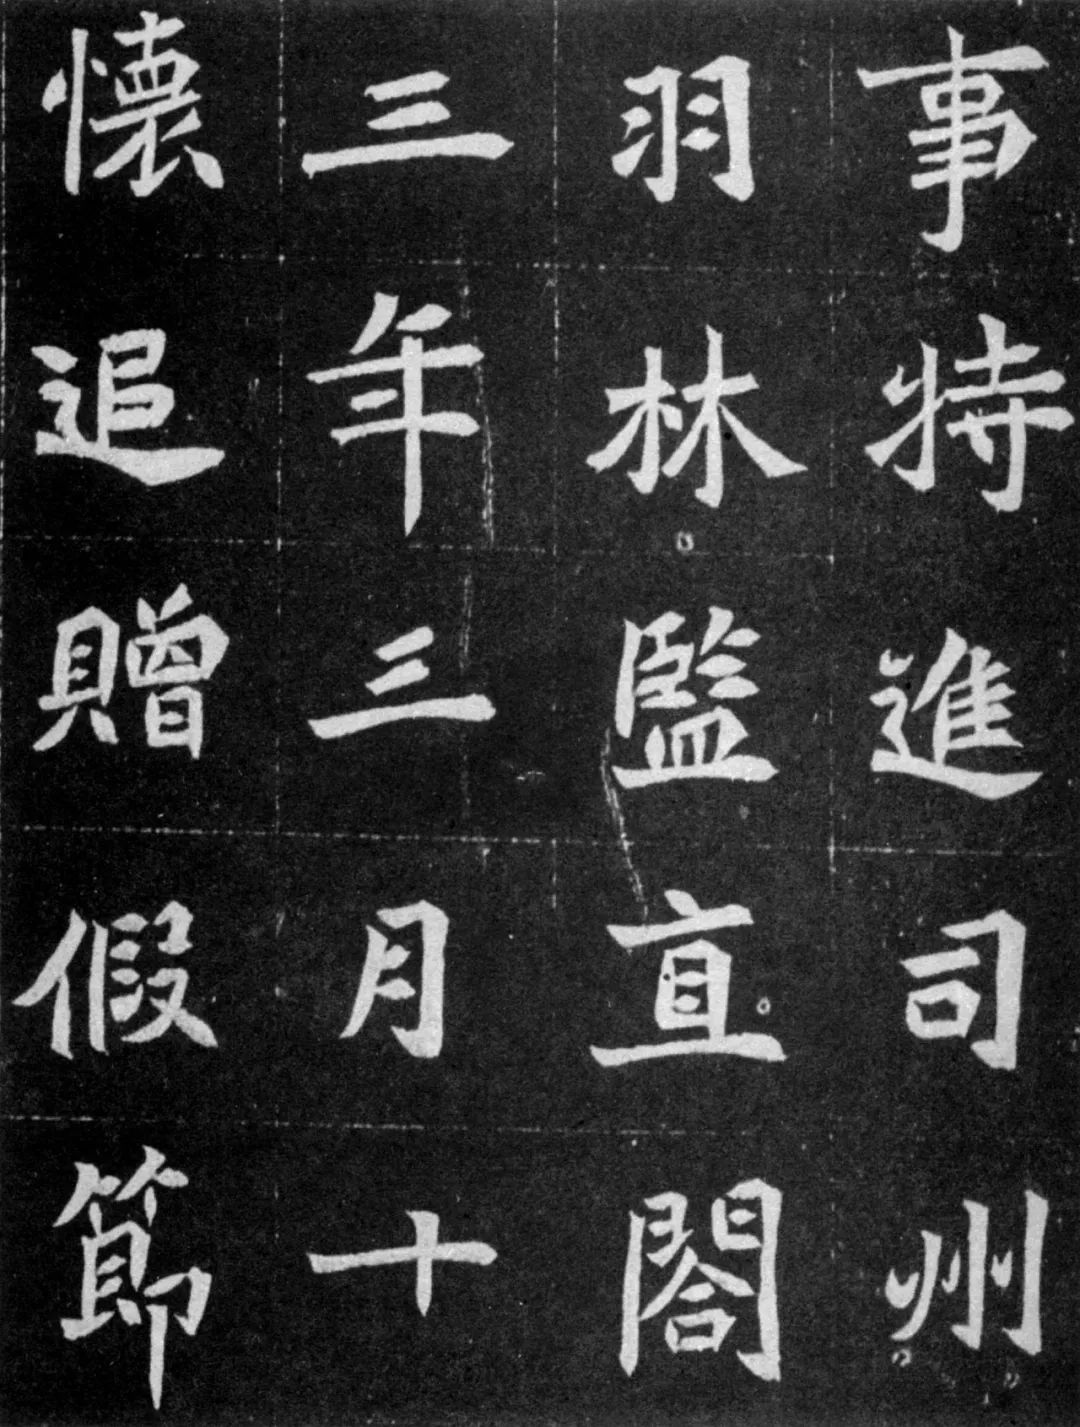 事特進司州
羽林監直閤
三年三月十
懐追贈假節